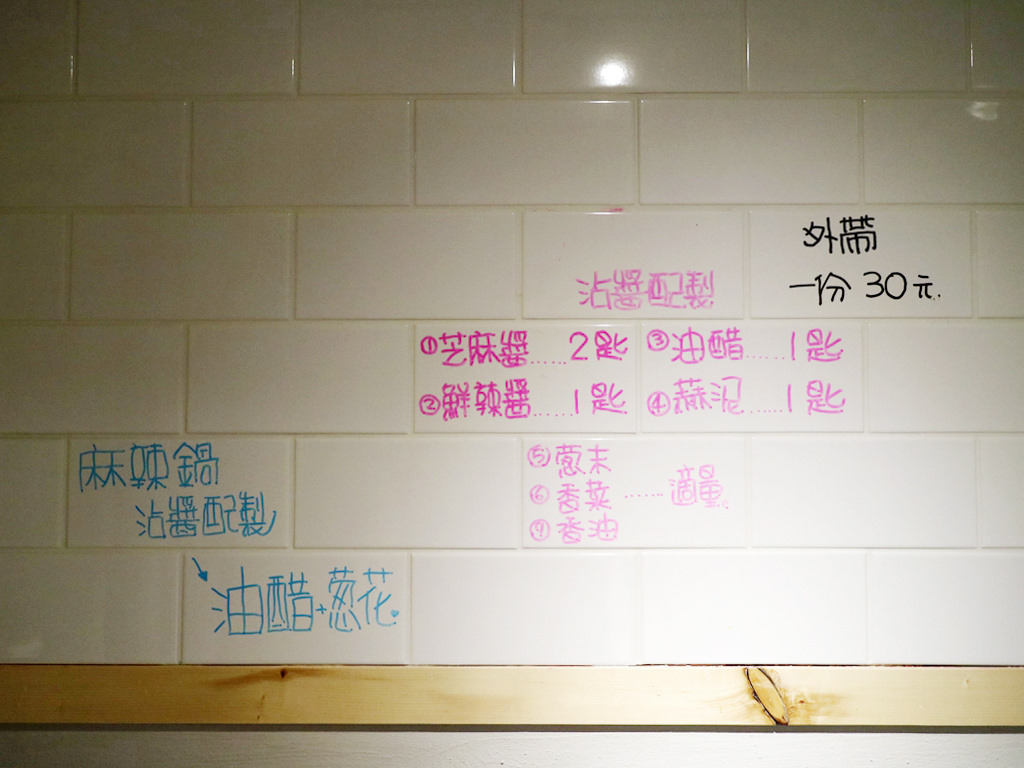 外帶
一份 30元.
沾醬配製
①芝麻醬......2匙 ③油醋......1匙
②鮮辣醬......1匙 ④蒜泥......1匙
⑤蔥末
⑥香菜......適量.
⑦香油
麻辣鍋
沾醬配製
油醋+蔥花